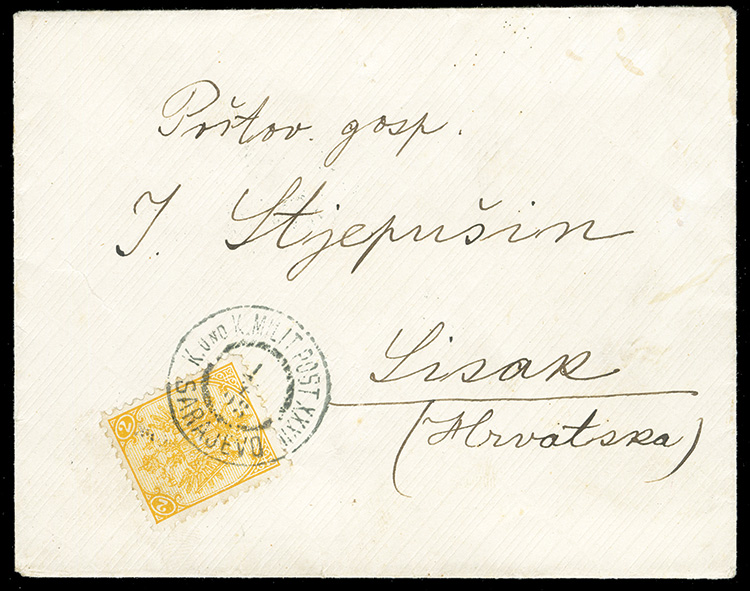 Pošto v. gosp.
J. Stjepušin
Sisak
(Hrvatska)
K. UND K. MILIT. POST. XXXVI
SARAJEVO
2
2